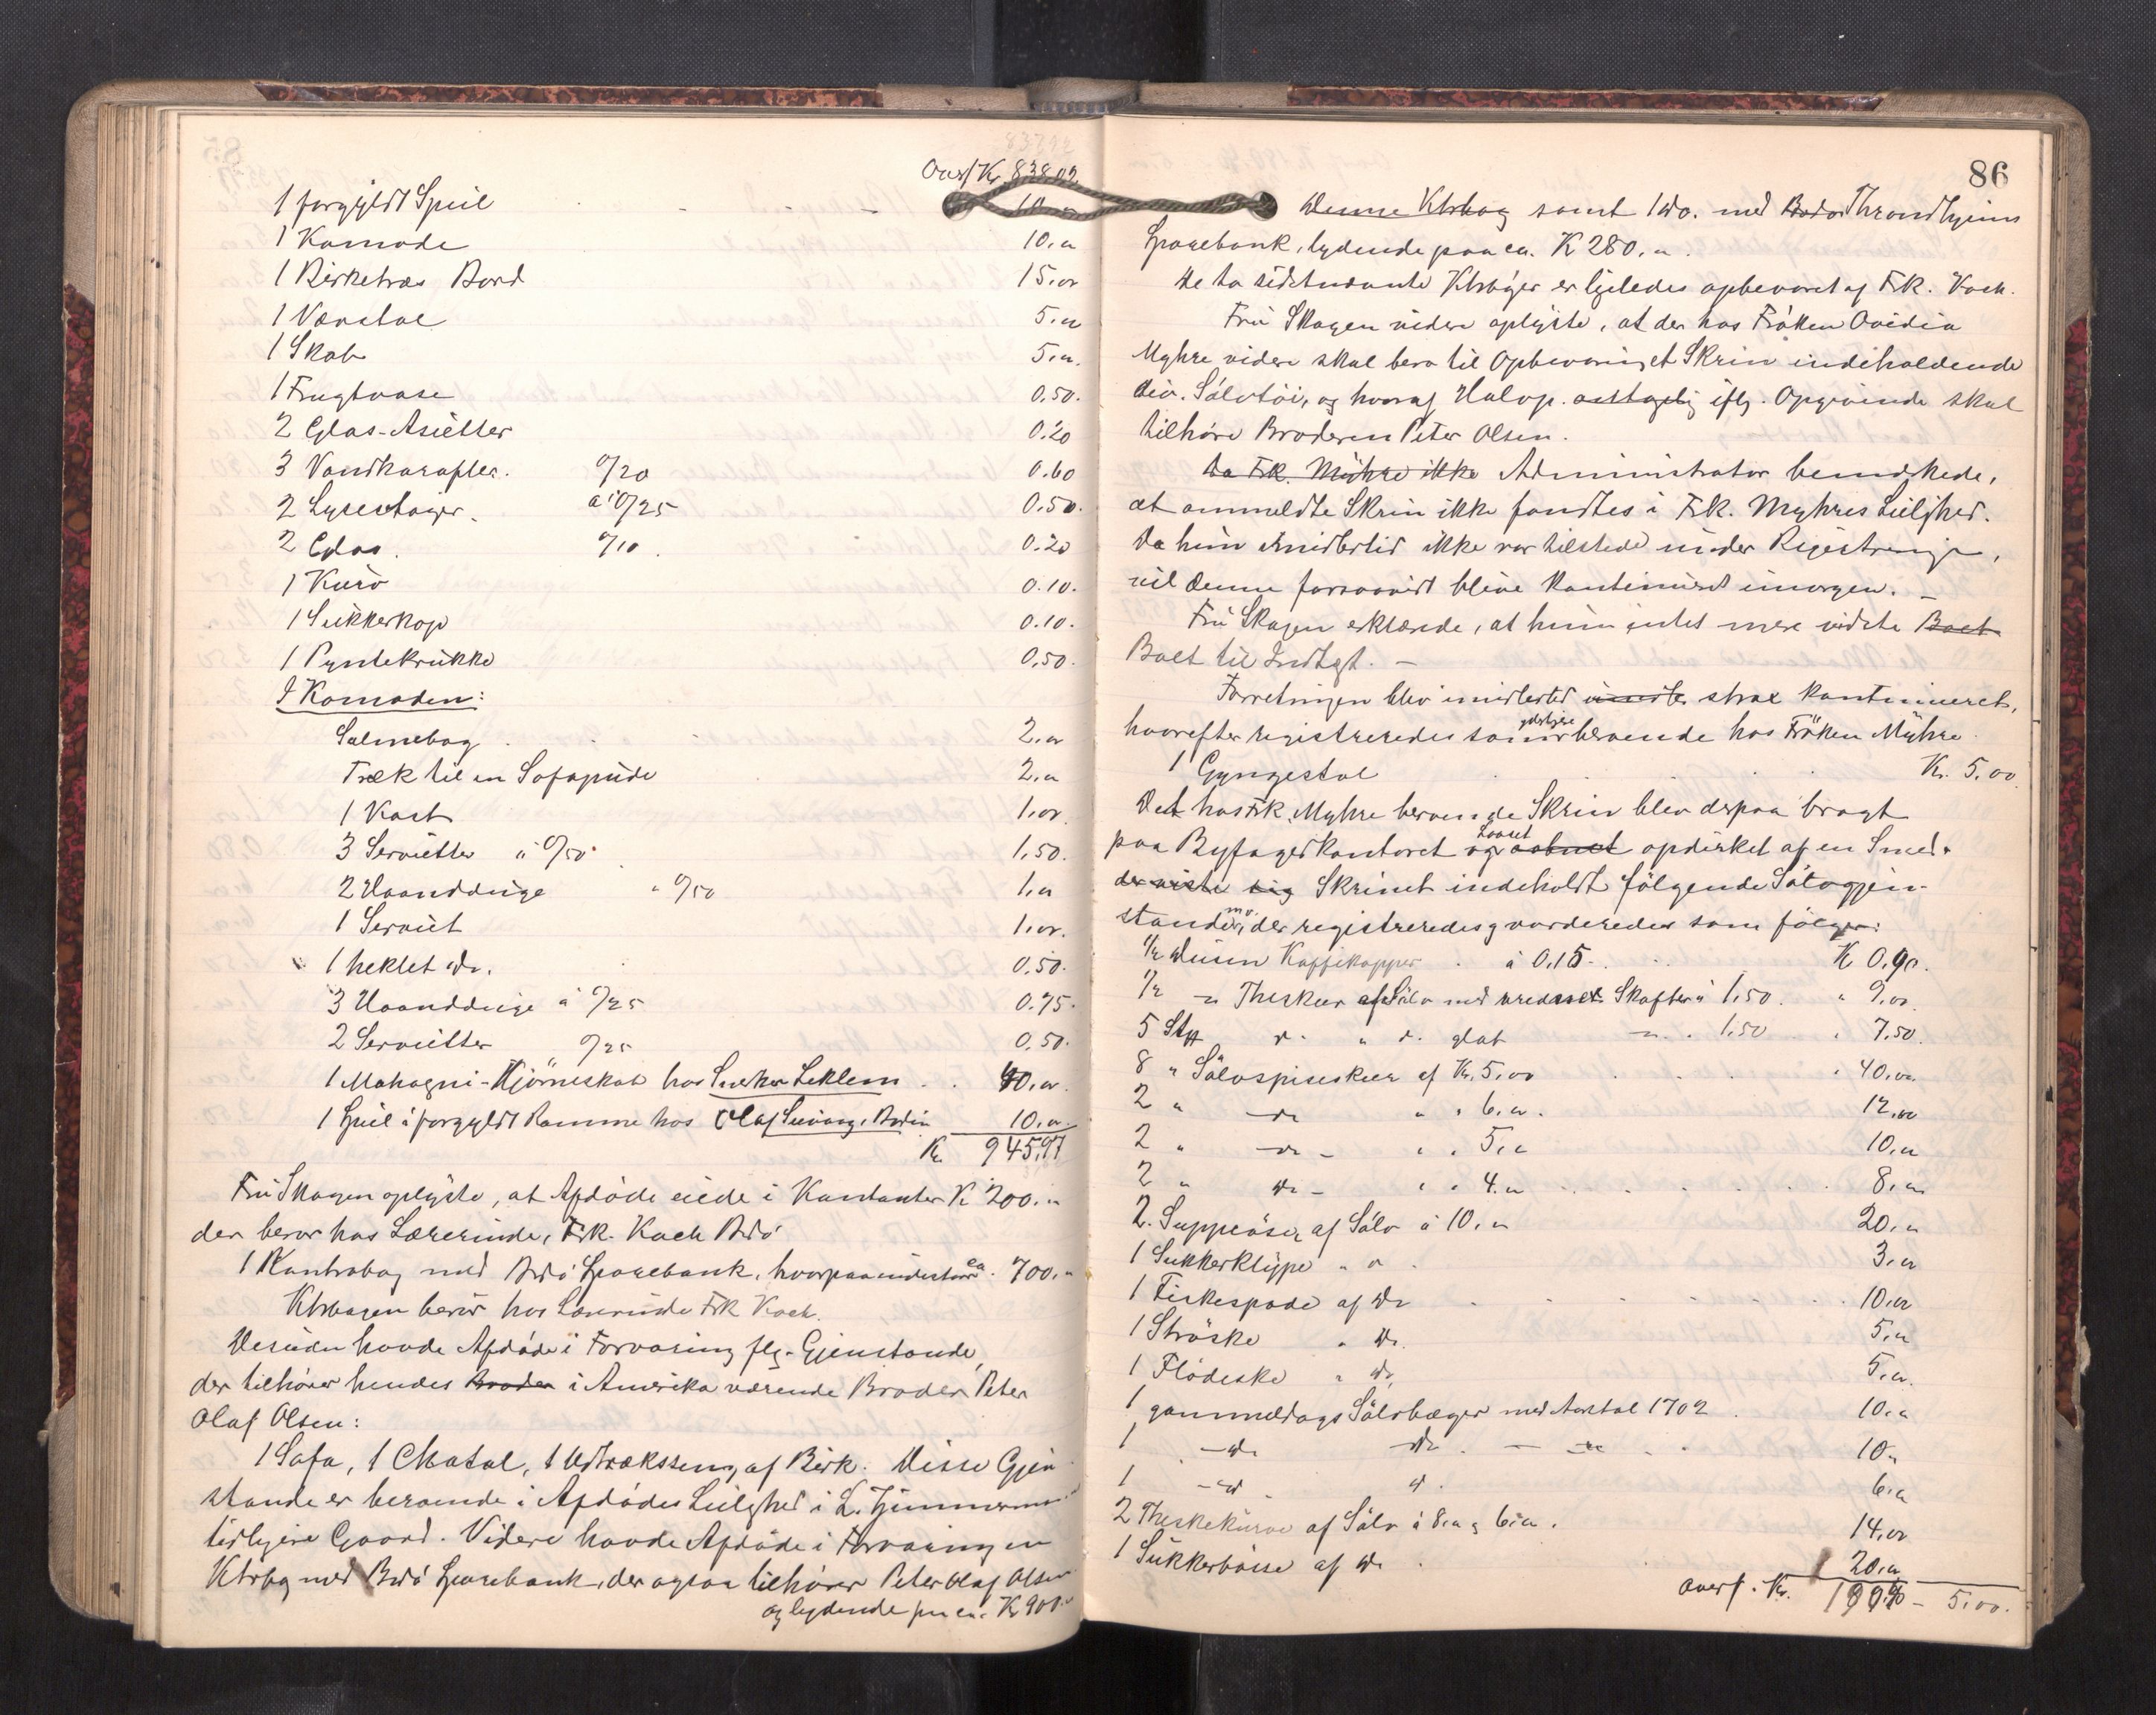 Overf Kr. 838.02
1 forgyldt Speil 10.
1 Komode 10.
1 Birketræs Bord 15.00
1 Vævstol 5.
1 Skab 5.
1 Frugtvase 0.50.
2 Glas-Asietter 0.20
3 Vandkarafler. 0/20 0.60
2 Lysestager. à 0/25 0.50.
2 Glas. 0/10. 0.20
1 Kurv 0.10.
1 Sukkerkop 0.10.
1 Pyntekrukke 0.50.
I Komoden:
Salmebog 2.
Træk til en Sofapude 2.
1 Kost 1.
3 Servietter à 0/50 1.50.
2 Haandduge 0/50 1.
1 Serviet 1.
1 heklet do. 0.50.
3 Haandduge à 0/25 0.75.
2 Servietter 0/25 0.50.
1 Mahogni-Hjörneskab hos Snekker Leklem 40.
1 Speil i forgyldt Ramme hos Olaf Bodin 10.
Kr. 945.97
Fru Skagen oplyste, at Afdøde eiede i Kontanter K 200.
der beror hos Lærerinde, Frk. Koch Bodø
1 Kontrabog med Bodø Sparebank, hvorpaa indestaar ca. 700.
Ktrbogen berör hos Lærerinde Frk Koch.
Desuden havde Afdøde i Forvaring flg. Gjenstande,
der tilhører hendes Broder i Amerika værende Broder Peter
Olaf Olsen:
1 Sofa, 1 Chatol, 1 Udtræksseng af Birk. Disse Gjen-
stande er beroende i Afdødes Leilghed i L.
tidligere Gaard. Videre havde Afdøde i Forvaring en
Ktrbog med Bodø Sparebank, der ogsaa tilhører Peter Olaf Olsen
og lydende paa ca. Kr 900.
86
Denne Ktrbog samt 1 do. med Bodø Throndhjems
Sparebank, lydende paa ca. K 280.
De to sidstnævnte Ktrbøger er ligeledes opbevaret af Frk. Koch.
Fru Skagen videre oplyste, at der hos Fröken Ovidia
Myhre videre skal bero til Opbevaring et Skrin indeholdende
div. Sölvtöi, og hvoraf Halvp. iflg. Opgivende skal
tilhöre Broderen Peter Olsen.
Da Frk. Myhre ikke Administrator bemærkede,
at anmeldte Skrin ikke fandtes i Frk. Myhres Leilghed.
Da hun imidlertid ikke var tilstede under Registrering,
vil denne forsaavidt blive kontinueret imorgen. –
Fru Skagen erklærede, at hun intet mere vidste Boet
Boet til Indtgt. –
Forretningen blev imidlertid strax kontinueret,
hvorefter registreredes som yderligere beroende hos Fröken Myhre
1 Gyngestol Kr. 5.00
Det hos Frk. Myhre beroende Skrin blev derpaa bragt
paa Byfogedkontoret og Laaset aabnet opdirket af en Smed.
der viste sig Skrinet indeholdt følgende Sölvgjen-
stande m.v., der registreredes og vurderedes som følger:
1/2 Dusin Kaffekopper à 0.15. K 0.90.
1/2 – Theskeer af Sölv med Skafter à 1.50. " 9.00
5 Stk d. " d. glat – 1.50 " 7.50.
8 " Sölvspiseskeer af Kr. 5.00 " 40.00
2 " – do " " 6. 12.00
2 " – do – " " 5. 10.
2 " do – " " 4. 8.
2. Suppeöser af Sölv à 10. 20.
1 Sukkerklype " " 3.
1 Fiskespade af do 10.
1 Ströske " do. 5.
1 Flödeske " do. 5.
1 gammeldags Sölvbæger med Aarstal 1702 10.
1 – do do. – – 10.
1 – do d. 6.
2 Theskekurve af Sölv à 8. & 6. 14.
1 Sukkerbösse af do 20.
Overf. Kr. 190.40 – 5.00.